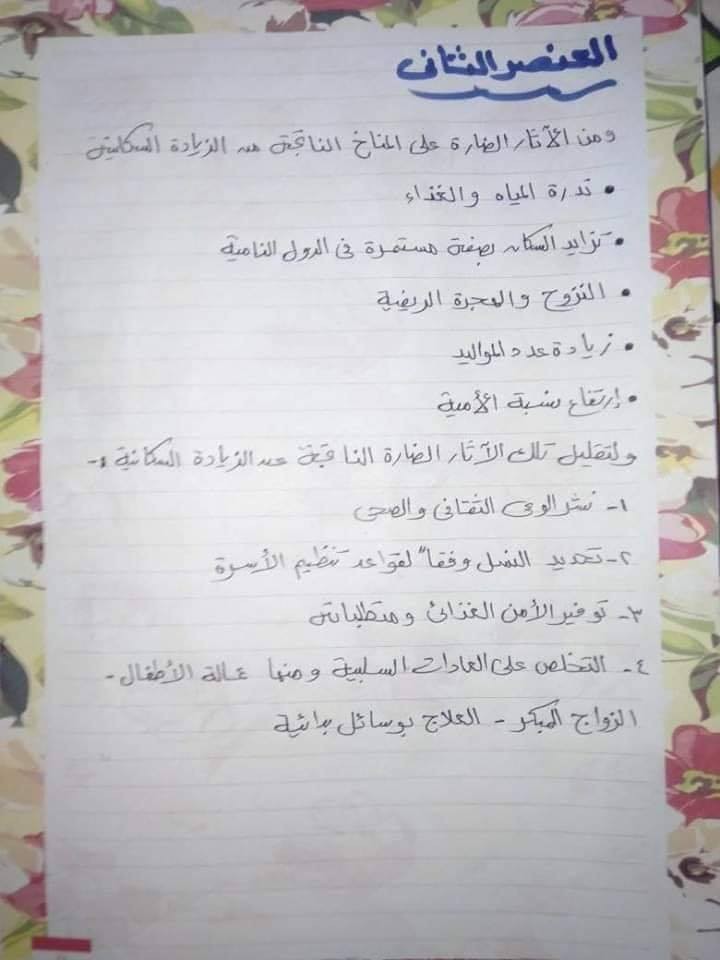 العنصر الثانى
ومن الآثار الضارة على المناخ الناتجة من الزيادة السكانية
• ندرة المياه والغذاء
• تزايد السكان بصفة مستمرة فى الدول النامية
• النزوح والهجرة الريفية
• زيادة عدد المواليد
• إرتفاع نسبة الأمية
ولتقليل تلك الآثار الضارة الناتجة عن الزيادة السكانية :-
١- نشر الوعى الثقافى والصحى
٢- تحديد النسل وفقاً لقواعد تنظيم الأسرة
٣- توفير الأمن الغذائى ومتطلباته
٤- التخلص على العادات السلبية ومنها عمالة الأطفال -
الزواج المبكر - العلاج بوسائل بدائية